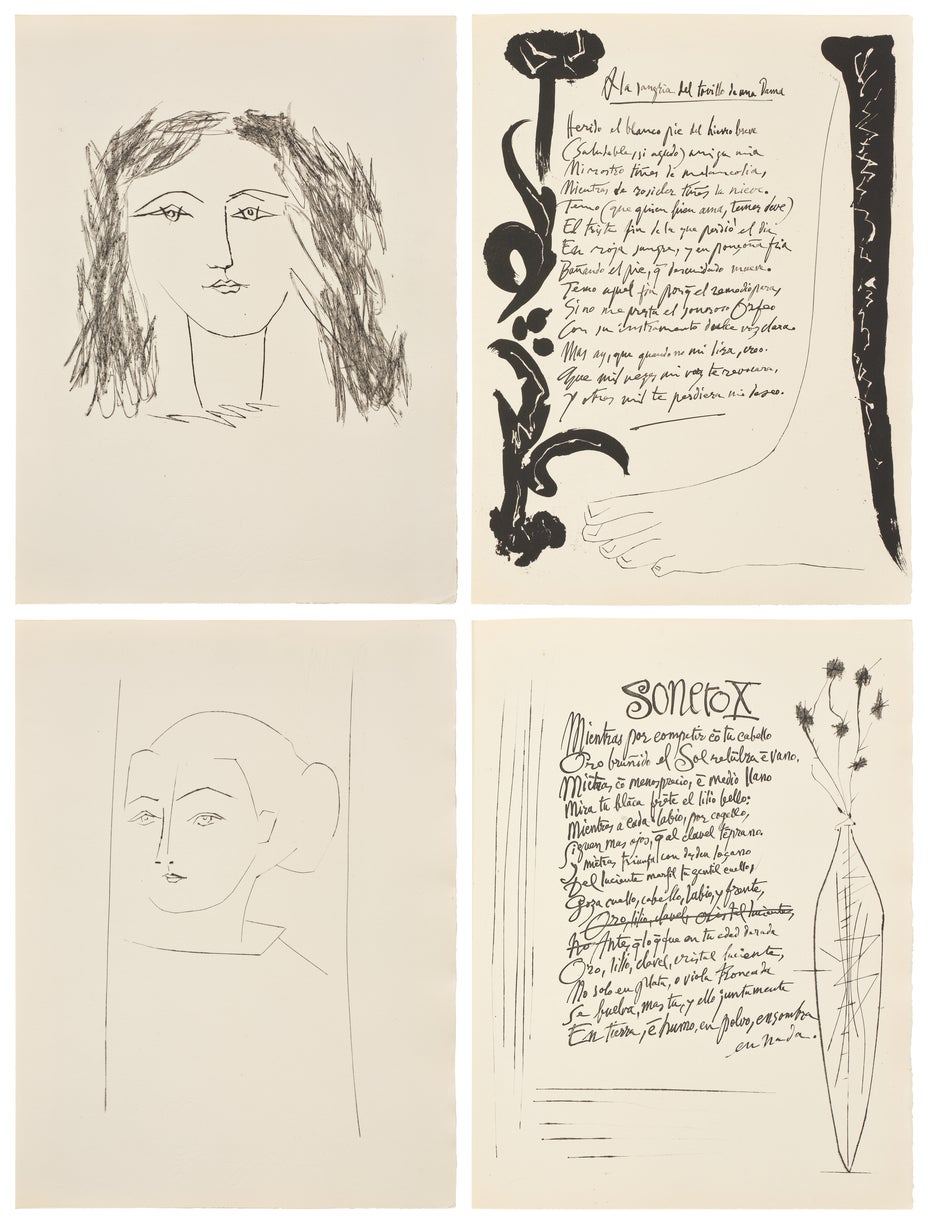 A la sangria del tovillo de una Dama
Herido el blanco pie del hierro breve
(Saludable, si agudo) amiga mia
Mi rostro tiñes de melancolia,
Mientras de rosicler tiñes la nieve.
Temo (que quien bien ama, temer deve)
El triste fin de la que perdió el dia
En roja sangre, y en ponçoña fria
Bañando el pie, q̃ descuidado mueve.
Temo aquel fin porq̃ el remedio para,
Si no me presta el sonoroso Orfeo
Con su instrumento dulce voz clara.
Mas ay, que quando no mi lira, creo.
Que mil vezes mi voz te revocara,
Y otras mil te perdiera mi deseo.
Soneto X
Mientras por competir cõ tu cabello
Oro bruñido el Sol relũbra ẽ vano,
Miẽtras cõ menosprecio, ẽ medio llano
Mira tu blãca frẽte el lilio bello;
Mientras a cada labio, por cogello,
Siguen mas ojos, q̃ al clavel tẽprano.
y miẽtras triunfa con desden loçano
Del luciente marfil tu gentil cuello,
Goza cuello, cabello, labio, y frente,
Oro, lilio, clavel, cristal luciente,
Antes q̃ lo q̃ fue en tu edad dorada
Oro, lilio, clavel, cristal luciente,
No solo en plata, o viola troncada
Se buelva, mas tu, y ello juntamente
En tierra, ẽ humo, en polvo, en sombra
en nada.